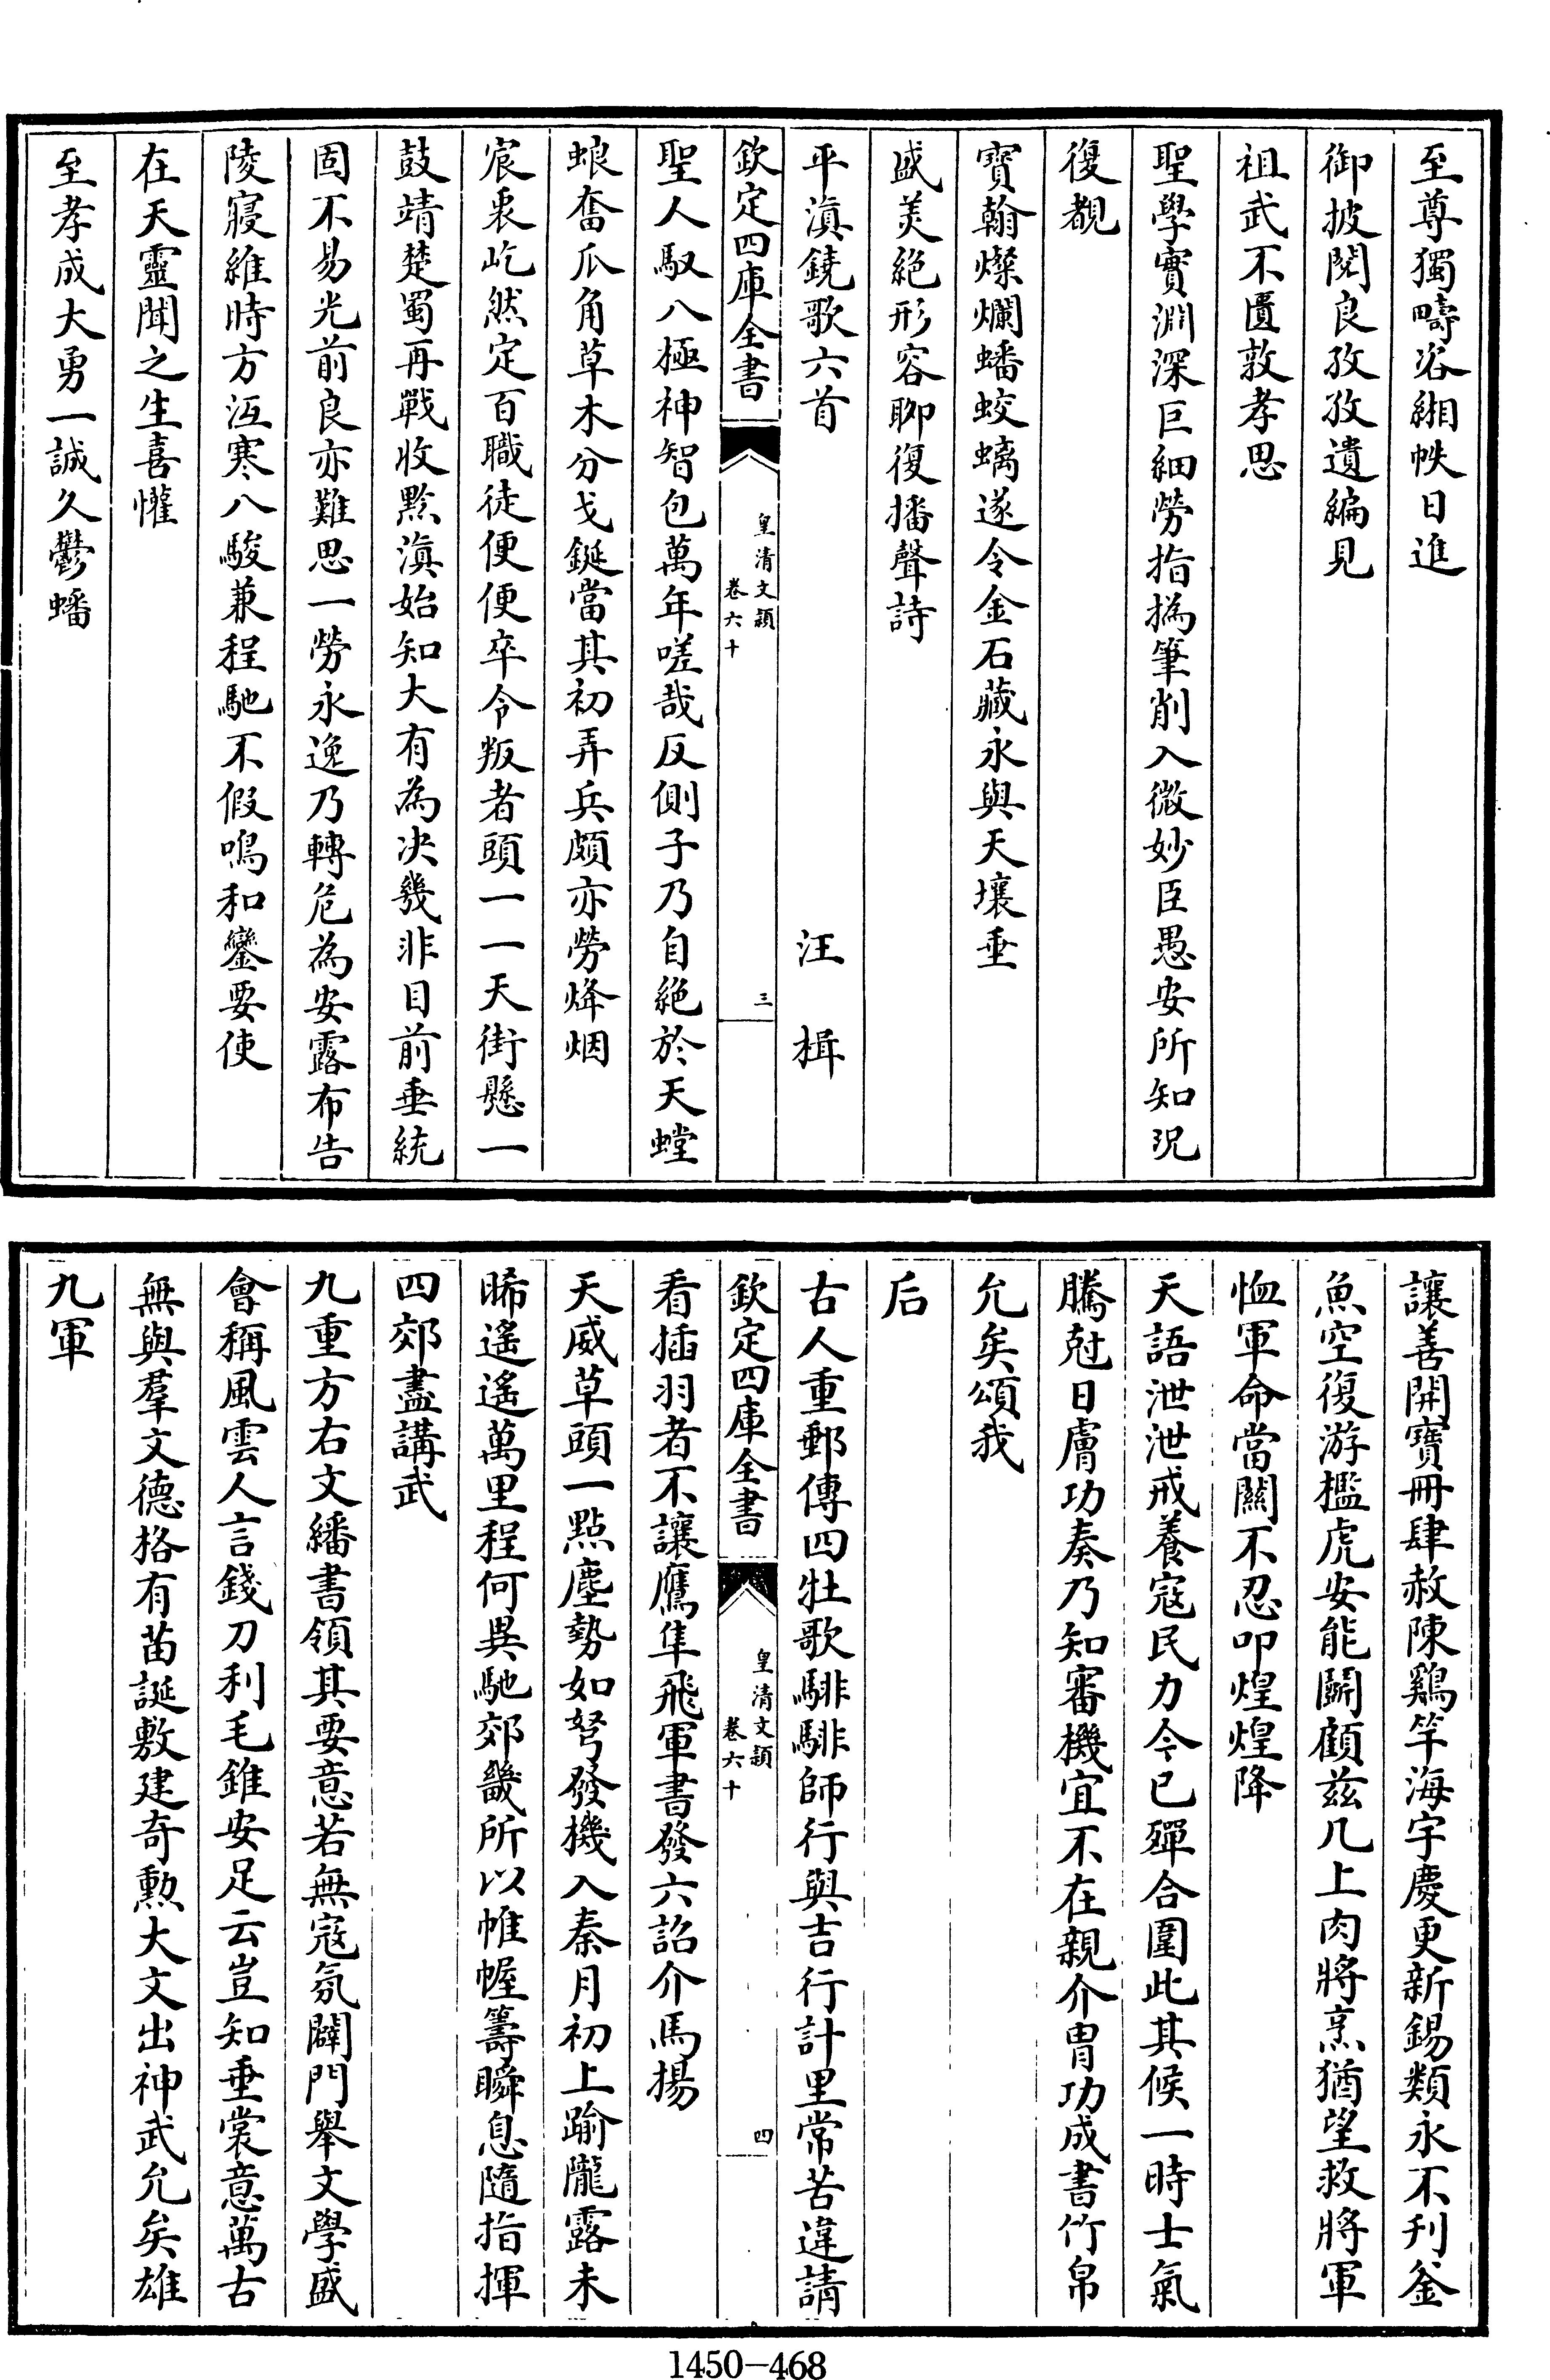 至尊獨疇咨緗帙日進
御披閱良孜孜遺編見
祖武不匱敦孝思
聖學實淵深巨細勞指撝筆削入微妙臣愚安所知況
復覩
寶翰燦爛蟠蛟螭遂令金石藏永與天壤垂
盛美絕形容聊復播聲詩
平滇鐃歌六首 汪楫
欽定四庫全書 皇清文穎 卷六十 三
聖人馭八極神智包萬年嗟哉反側子乃自絕於天螳
蜋奮爪角草木分戈鋋當其初弄兵頗亦勞烽烟
宸衷屹然定百職徒便便卒令叛者頭一一天街懸一
鼓靖楚蜀再戰收黔滇始知大有為決幾非目前垂統
固不易光前良亦難思一勞永逸乃轉危為安露布告
陵寢維時方沍寒八駿兼程馳不假鳴和鑾要使
在天靈聞之生喜懽
至孝成大勇一誠久鬱蟠
讓善開寶冊肆赦陳鷄竿海宇慶更新錫類永不刋釜
魚空復游檻虎安能鬬顧茲几上肉將烹猶望救將軍
恤軍命當關不忍叩煌煌降
天語泄泄戒養寇民力今已殫合圍此其候一時士氣
騰尅日膚功奏乃知審機宜不在親介冑功成書竹帛
允矣頌我
后
古人重郵傳四牡歌騑騑師行與吉行計里常苦違請
欽定四庫全書 皇清文穎 卷六十 四
看插羽者不讓鷹隼飛軍書發六詔介馬揚
天威草頭一點塵勢如弩發機入秦月初上踰隴露未
晞遙遙萬里程何異馳郊畿所以帷幄籌瞬息隨指揮
四郊盡講武
九重方右文繙書領其要意若無寇氛闢門舉文學盛
會稱風雲人言錢刀利毛錐安足云豈知垂裳意萬古
無與羣文德格有苗誕敷建奇勲大文出神武允矣雄
九軍
1450-468